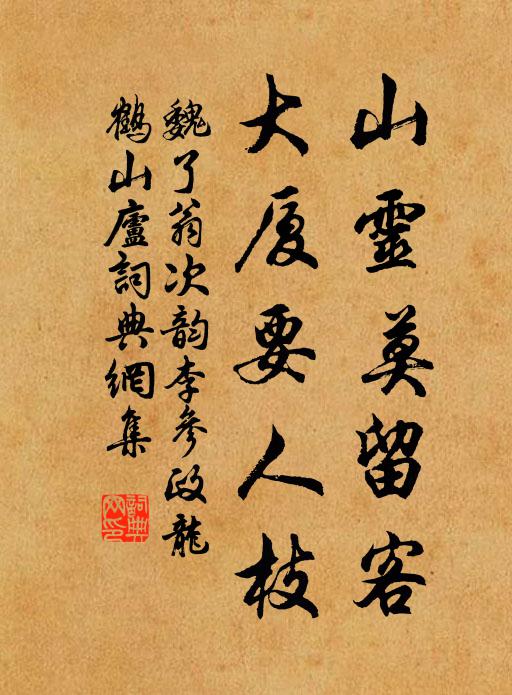 山靈莫留客
大厦要人枝
魏了翁次韵李參政龍
鶴山廬詞典網集
詞典網印